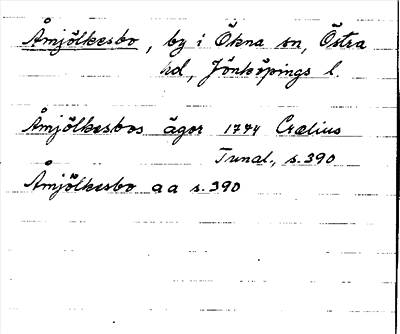 Åmjölkesbo, by i Ökna sn, Östra
hd, Jönköpings l.
Åmjölkesbos ägor 1744 Crælius
Tunal., s. 390
Åmjölkesbo a a s. 390